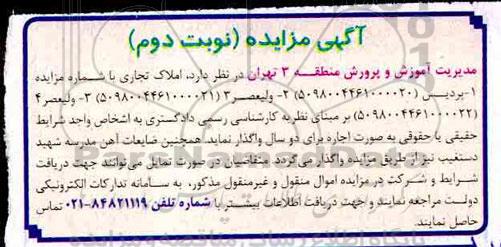 آگهی مزایده (نوبت دوم)
مدیریت آموزش و پرورش منطقه ۳ تهران در نظر دارد، املاک تجاری با شماره مزایده
۱-پردیس (۵۰۹۸۰۰۴۴۶۱۰۰۰۰۲۰) ۲- ولیعصر۳ (۵۰۹۸۰۰۴۴۶۱۰۰۰۰۲۱) ۳- ولیعصر۴
(۵۰۹۸۰۰۴۴۶۱۰۰۰۰۲۲) بر مبنای نظریه کارشناسی رسمی دادگستری به اشخاص واجد شرایط
حقیقی یا حقوقی به صورت اجاره برای دو سال واگذار نماید. همچنین ضایعات آهن مدرسه شهید
دستغیب نیز از طریق مزایده واگذار می‌گردد. متقاضیان در صورت تمایل می‌توانند جهت دریافت
شرایط و شرکت در مزایده اموال منقول و غیرمنقول مذکور، به سامانه تدارکات الکترونیکی
دولت مراجعه نمایند و جهت دریافت اطلاعات بیشتر با شماره تلفن ۸۴۸۲۱۱۱۹-۰۲۱ تماس
حاصل نمایند.